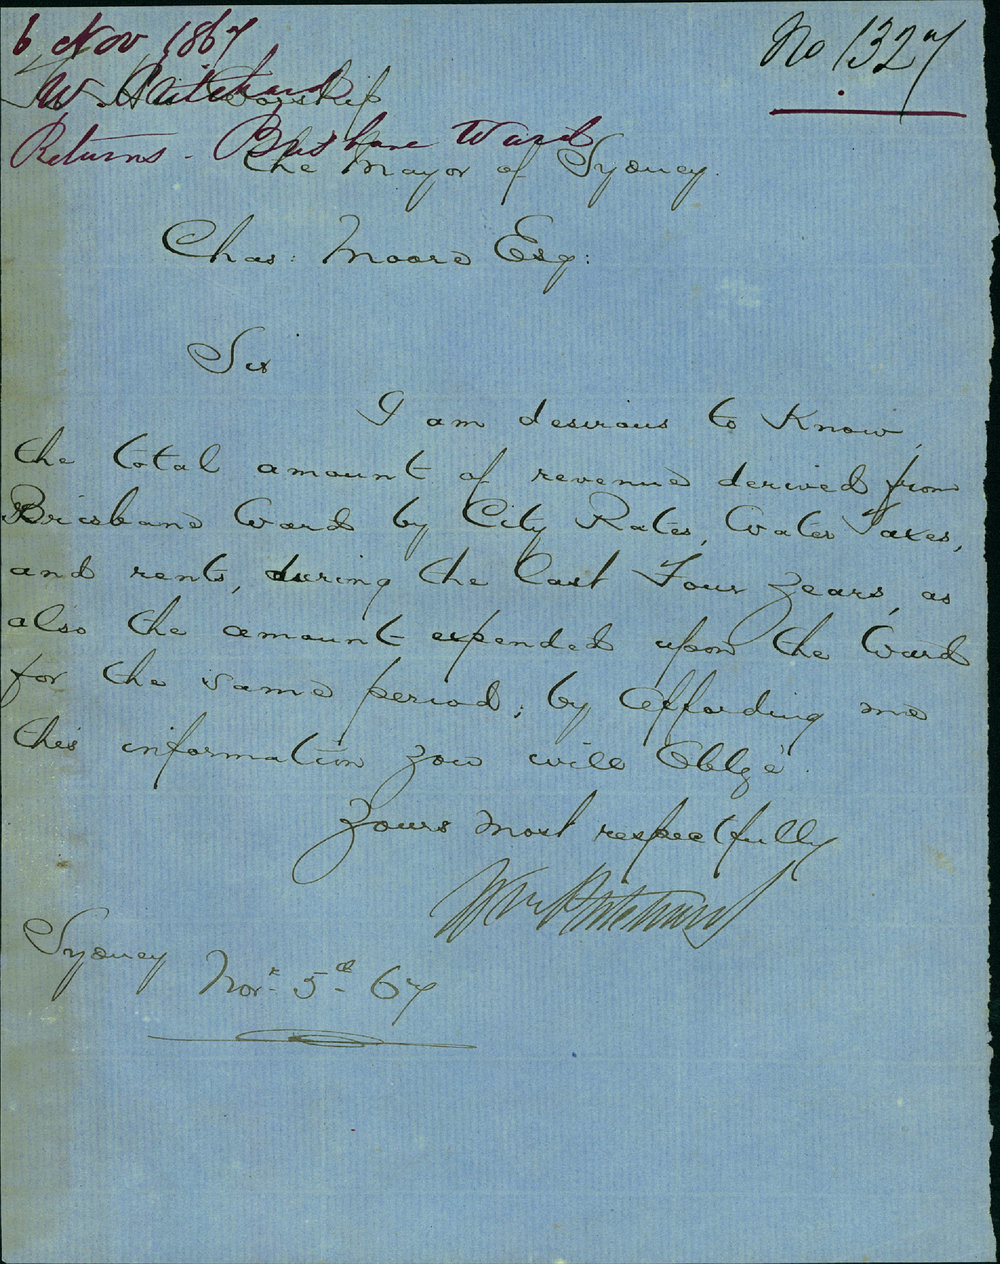 6 Nov 1867
No 1327
W. Pritchard
To His Worship
Returns - Brisbane Ward
The Mayor of Sydney.
Chas: Moore Esq:
Sir
I am desirous to Know,
the total amount of revenue derived from
Brisbane Ward by City Rates, Water Taxes,
and rents, during the last Four years, as
also the amount expended upon the Ward
for the same period; by affording me
this information you will Oblge.
Yours most respectfully
Wm Pritchard
Sydney Novr. 5th. 67